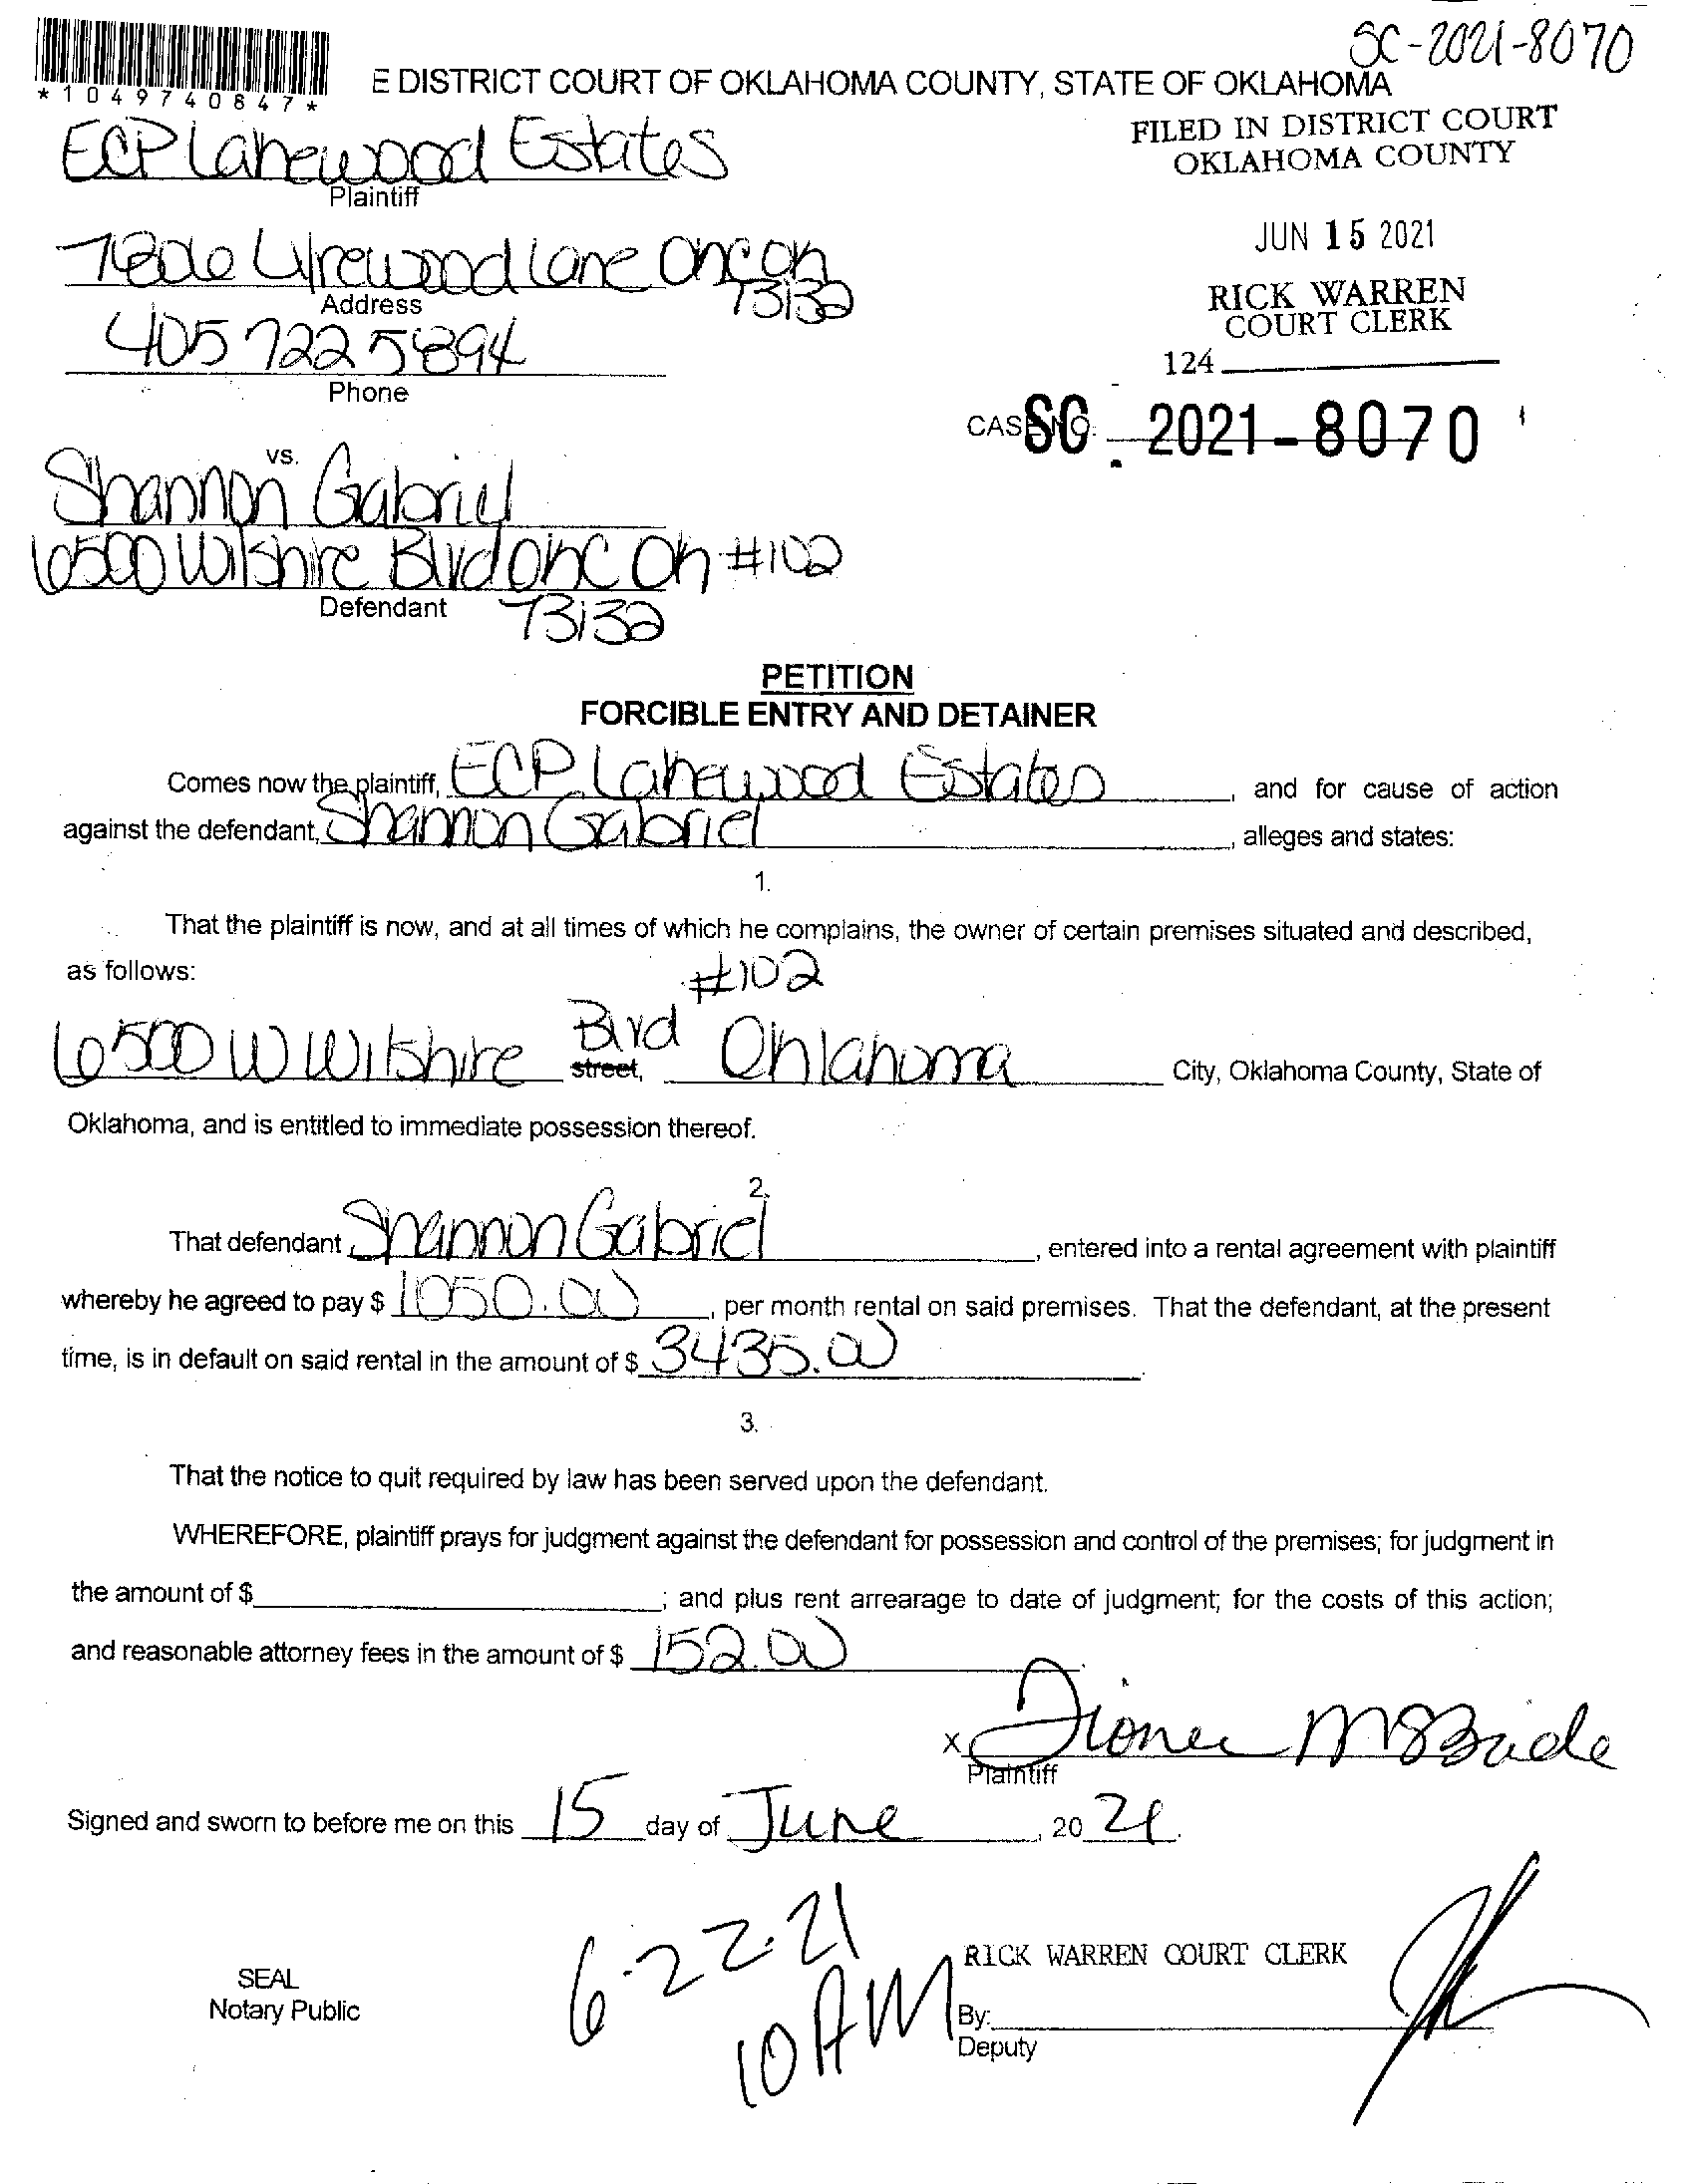 SC-2021-8070
*1049740847*
E DISTRICT COURT OF OKLAHOMA COUNTY, STATE OF OKLAHOMA
FILED IN DISTRICT COURT
OKLAHOMA COUNTY
JUN 15 2021
RICK WARREN
COURT CLERK
124
ECP Lakewood Estates
Plaintiff
Lyrewood Lane OKC OK
73132
Address
405 722 5894
Phone
CASE NO. SC 2021-8070
vs.
Shannon Gabriel
6500 Wilshire Blvd OKC OK #102
Defendant 73132
PETITION
FORCIBLE ENTRY AND DETAINER
Comes now the plaintiff, ECP Lakewood Estates, and for cause of action
against the defendant, Shannon Gabriel, alleges and states:
1.
That the plaintiff is now, and at all times of which he complains, the owner of certain premises situated and described,
as follows: #102
6500 W Wilshire Blvd street, Oklahoma City, Oklahoma County, State of
Oklahoma, and is entitled to immediate possession thereof.
2.
That defendant, Shannon Gabriel, entered into a rental agreement with plaintiff
whereby he agreed to pay $ 1050.00, per month rental on said premises. That the defendant, at the present
time, is in default on said rental in the amount of $ 3435.00
3.
That the notice to quit required by law has been served upon the defendant.
WHEREFORE, plaintiff prays for judgment against the defendant for possession and control of the premises; for judgment in
the amount of $ ; and plus rent arrearage to date of judgment; for the costs of this action;
and reasonable attorney fees in the amount of $ 152.00
x McBride
Plaintiff
Signed and sworn to before me on this 15 day of June, 20 21.
6-22-21
10 AM
RICK WARREN COURT CLERK
SEAL
Notary Public
By:
Deputy